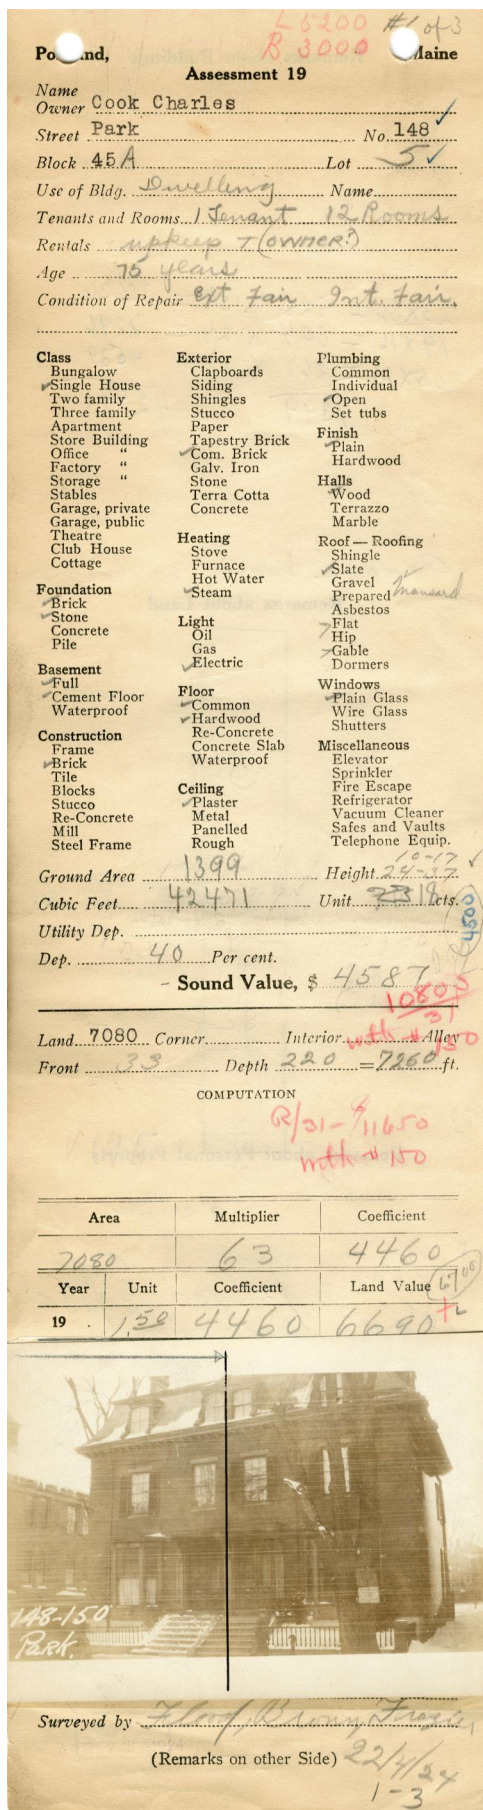 L 5200 #1 of 3
B 3000
Portland, Maine
Assessment 19
Name
Owner Cook Charles
Street Park No. 148
Block 45 A Lot 5
Use of Bldg. Dwelling Name
Tenants and Rooms 1 Tenant 12 Rooms
Rentals upkeep T (OWNER?)
Age 75 years
Condition of Repair Ext Fair Int. Fair.
Class
Bungalow
Single House
Two family
Three family
Apartment
Store Building
Office "
Factory "
Storage "
Stables
Garage, private
Garage, public
Theatre
Club House
Cottage
Foundation
Brick
Stone
Concrete
Pile
Basement
Full
Cement Floor
Waterproof
Construction
Frame
Brick
Tile
Blocks
Stucco
Re-Concrete
Mill
Steel Frame
Exterior
Clapboards
Siding
Shingles
Stucco
Paper
Tapestry Brick
Com. Brick
Galv. Iron
Stone
Terra Cotta
Concrete
Heating
Stove
Furnace
Hot Water
Steam
Light
Oil
Gas
Electric
Floor
Common
Hardwood
Re-Concrete
Concrete Slab
Waterproof
Ceiling
Plaster
Metal
Panelled
Rough
Plumbing
Common
Individual
Open
Set tubs
Finish
Plain
Hardwood
Halls
Wood
Terrazzo
Marble
Roof — Roofing
Shingle
Slate
Gravel
Prepared + Mansard
Asbestos
Flat
Hip
Gable
Dormers
Windows
Plain Glass
Wire Glass
Shutters
Miscellaneous
Elevator
Sprinkler
Fire Escape
Refrigerator
Vacuum Cleaner
Safes and Vaults
Telephone Equip.
10-17
Ground Area 1399 Height 24-37
Cubic Feet 42471 Unit 18 cts.
4500
Utility Dep.
Dep. 40 Per cent.
Sound Value, $ 4587
10800
31
Land 7080 Corner Interior mth # 150 Alley
Front 33 Depth 220 = 7260 ft.
COMPUTATION
R/31 - $11650
mth # 150
Area Multiplier Coefficient
7080 63 4460
Year Unit Coefficient Land Value 6700
19 1.50 4460 6690
148-150
Park.
Surveyed by Flood, Brown, Frazier
(Remarks on other Side) 22/4/24
1-3